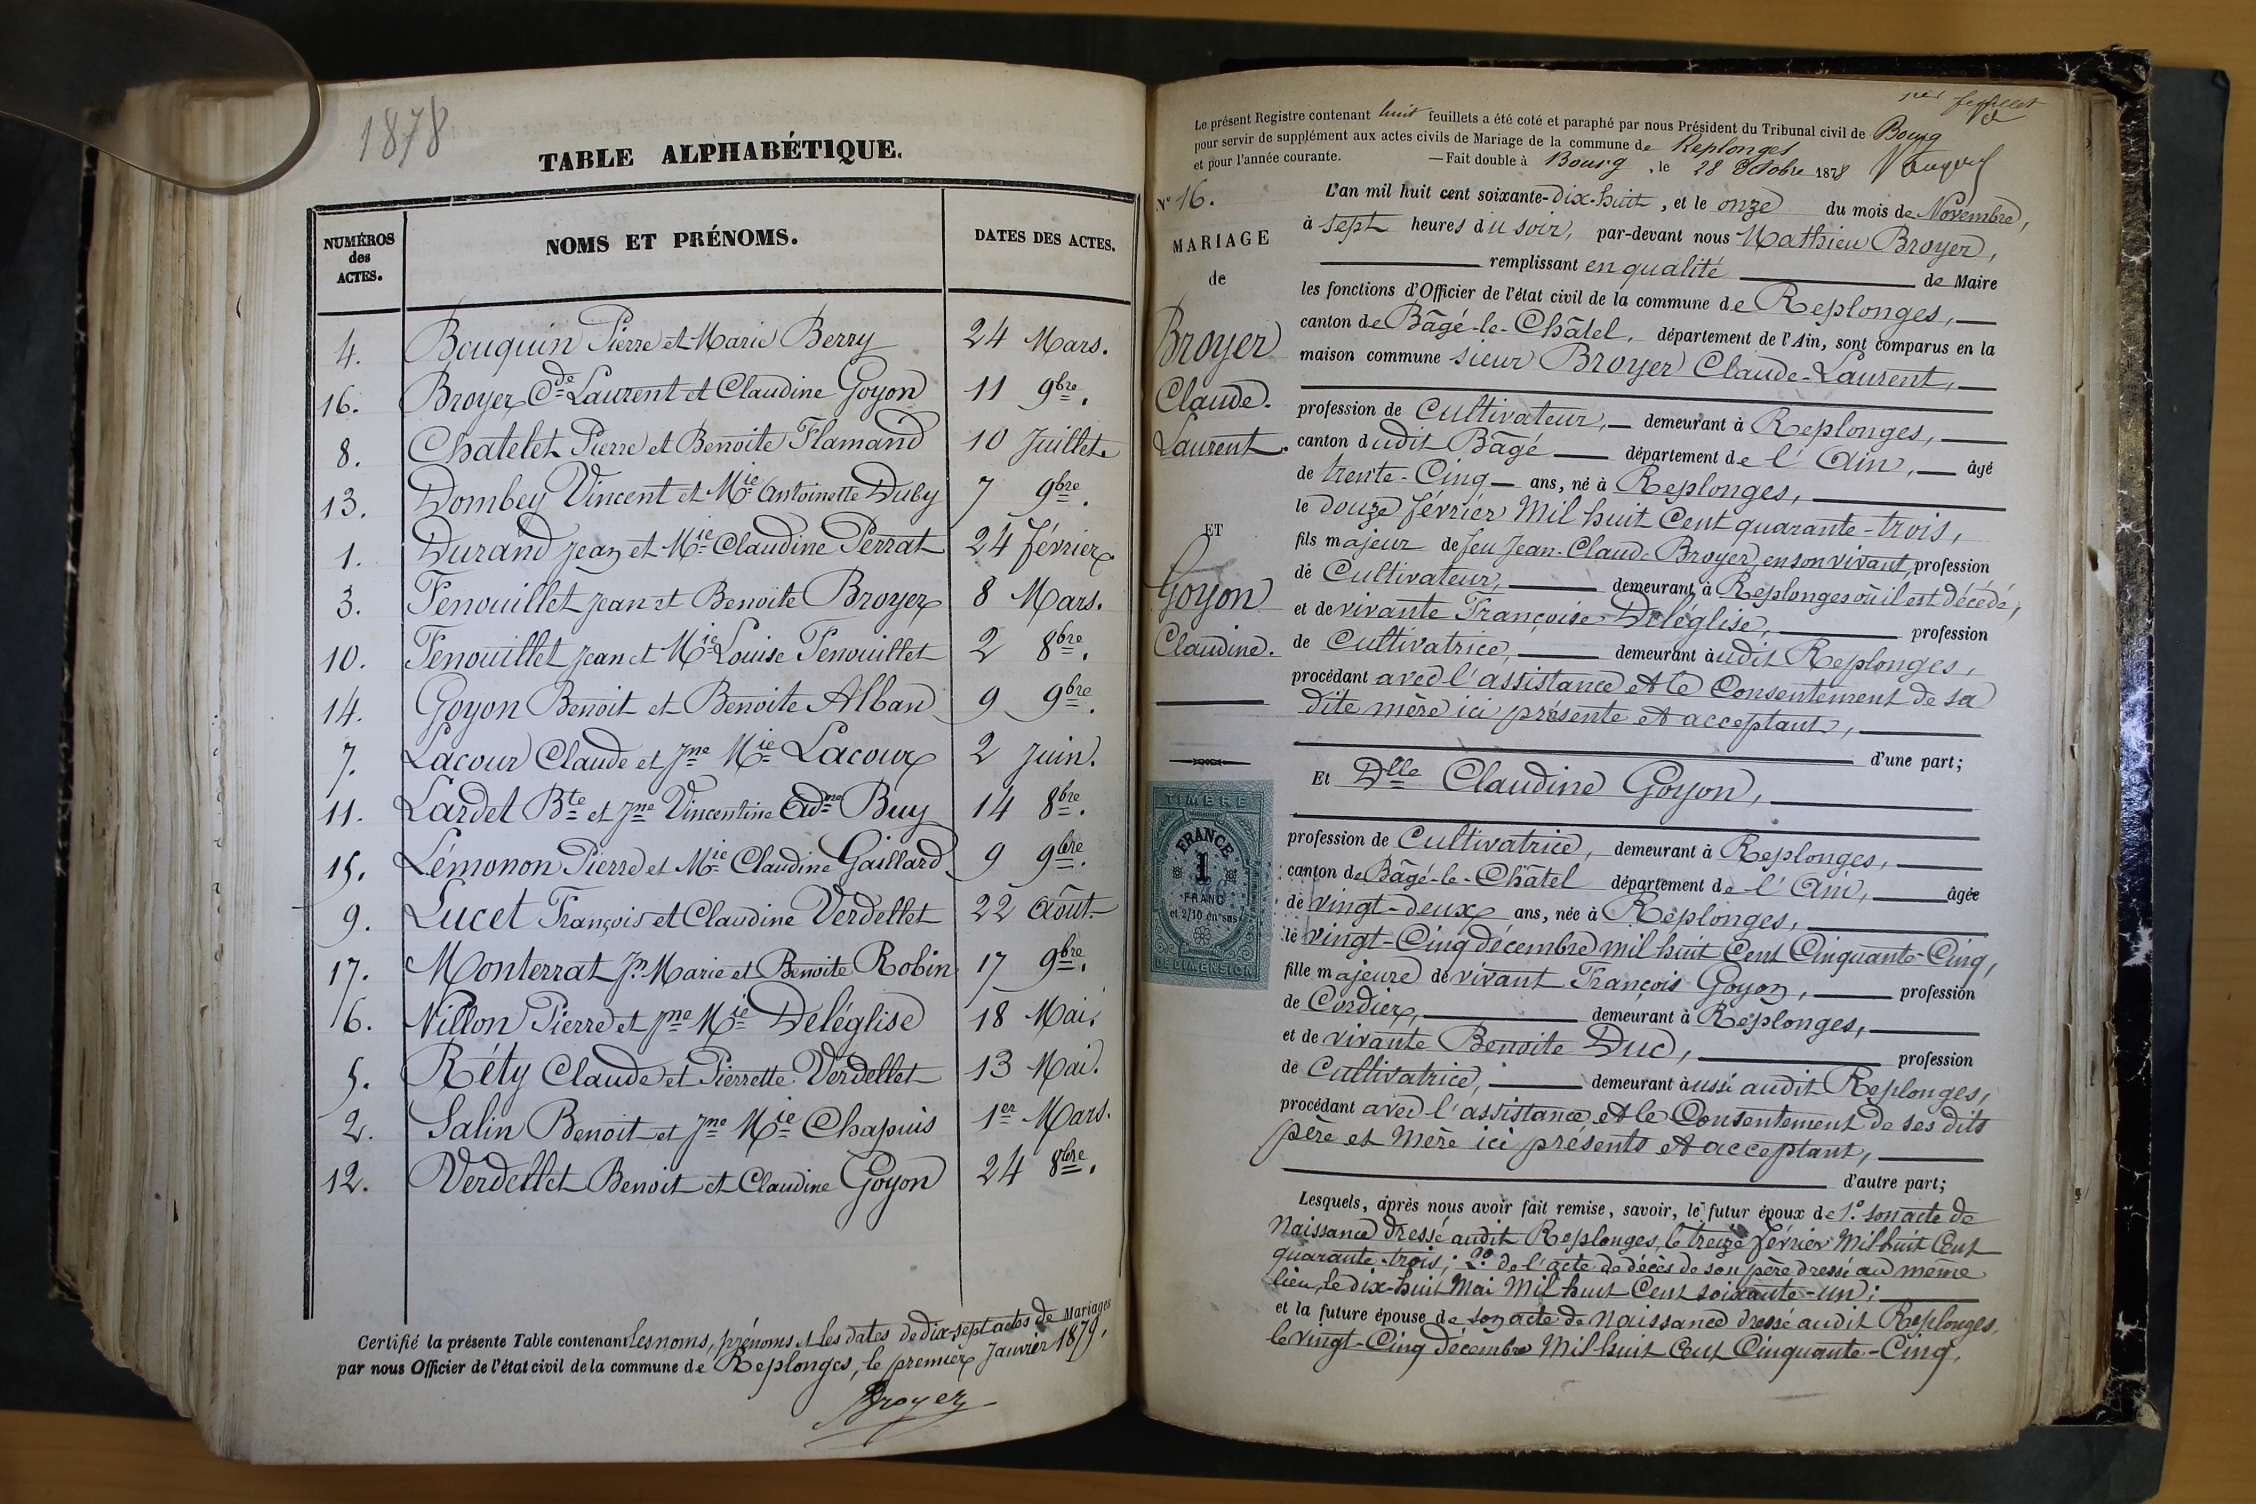 1878
TABLE ALPHABÉTIQUE.
NUMÉROS des ACTES. NOMS ET PRÉNOMS. DATES DES ACTES.
4. Bouquin Pierre et Marie Berry 24 Mars.
16. Broyer Cde Laurent et Claudine Goyon 11 9bre.
8. Châtelet Pierre et Benoite Flamand 10 Juillet.
13. Dombey Vincent et Mie Antoinette Duby 7 9bre.
1. Durand Jean et Mie Claudine Perrat 24 février
3. Fenouillet Jean et Benoite Broyer 8 Mars.
10. Fenouillet Jean et Mie Louise Fenouillet 2 8bre.
14. Goyon Benoit et Benoite Alban 9 9bre.
7. Lacour Claude et Jne Mie Lacour 2 Juin.
11. Lardet Bte et Jne Vincentine Buy 14 8bre.
15. Lémonon Pierre et Mie Claudine Gaillard 9 9bre.
9. Lucet François et Claudine Verdellet 22 Août
17. Monterrat Jn Marie et Benoite Robin 17 9bre.
6. Nillon Pierre et Jne Mie Deléglise 18 Mai.
5. Réty Claude et Pierrette Verdellet 13 Mai.
2. Salin Benoit et Jne Mie Chapuis 1er Mars.
12. Verdellet Benoit et Claudine Goyon 24 8bre.
Certifié la présente Table contenant les noms, prénoms et les dates de dix-sept actes de Mariages
par nous Officier de l'état civil de la commune de Replonges, le premier Janvier 1879.
Broyer
1er feuillet
Le présent Registre contenant huit feuillets a été coté et paraphé par nous Président du Tribunal civil de Bourg
pour servir de supplément aux actes civils de Mariage de la commune de Replonges
et pour l'année courante. — Fait double à Bourg, le 28 Octobre 1878
N° 16.
MARIAGE
de
Broyer
Claude-
Laurent.
ET
Goyon
Claudine.
TIMBRE
FRANCE
1
FRANC
et 2/10 en sus
DE DIMENSION
L'an mil huit cent soixante-dix-huit, et le onze du mois de Novembre,
à sept heures du soir, par-devant nous Mathieu Broyer,
remplissant en qualité de Maire
les fonctions d'Officier de l'état civil de la commune de Replonges,
canton de Bâgé-le-Châtel, département de l'Ain, sont comparus en la
maison commune sieur Broyer Claude-Laurent,
profession de Cultivateur, demeurant à Replonges,
canton dudit Bâgé département de l'Ain, âgé
de trente-Cinq ans, né à Replonges,
le douze février Mil huit Cent quarante-trois,
fils majeur de feu Jean-Claude Broyer, en son vivant, profession
de Cultivateur, demeurant à Replonges où il est décédé,
et de vivante Françoise Deléglise, profession
de Cultivatrice, demeurant audit Replonges,
procédant avec l'assistance et le Consentement de sa
dite mère ici présente et acceptant,
d'une part;
Et Dlle Claudine Goyon,
profession de Cultivatrice, demeurant à Replonges,
canton de Bâgé-le-Châtel département de l'Ain, âgée
de vingt-deux ans, née à Replonges,
le vingt-Cinq décembre mil huit Cent Cinquante-Cinq,
fille majeure de vivant François Goyon, profession
de Cordier, demeurant à Replonges,
et de vivante Benoite Duc, profession
de Cultivatrice, demeurant aussi audit Replonges,
procédant avec l'assistance et le Consentement de ses dits
père et mère ici présents et acceptant,
d'autre part;
Lesquels, après nous avoir fait remise, savoir, le futur époux de 1° son acte de
Naissance dressé audit Replonges, le treize février Mil huit Cent
quarante-trois; 2° de l'acte de décès de son père dressé au même
lieu, le dix-huit Mai Mil huit Cent soixante-un;
et la future épouse de son acte de Naissance dressé audit Replonges,
le vingt-Cinq décembre Mil huit Cent Cinquante-Cinq,